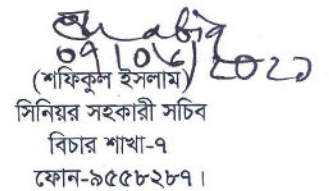 (শফিকুল ইসলাম)
সিনিয়র সহকারী সচিব
বিচার শাখা-৭
ফোন-৯৫৫৮২৮৭।